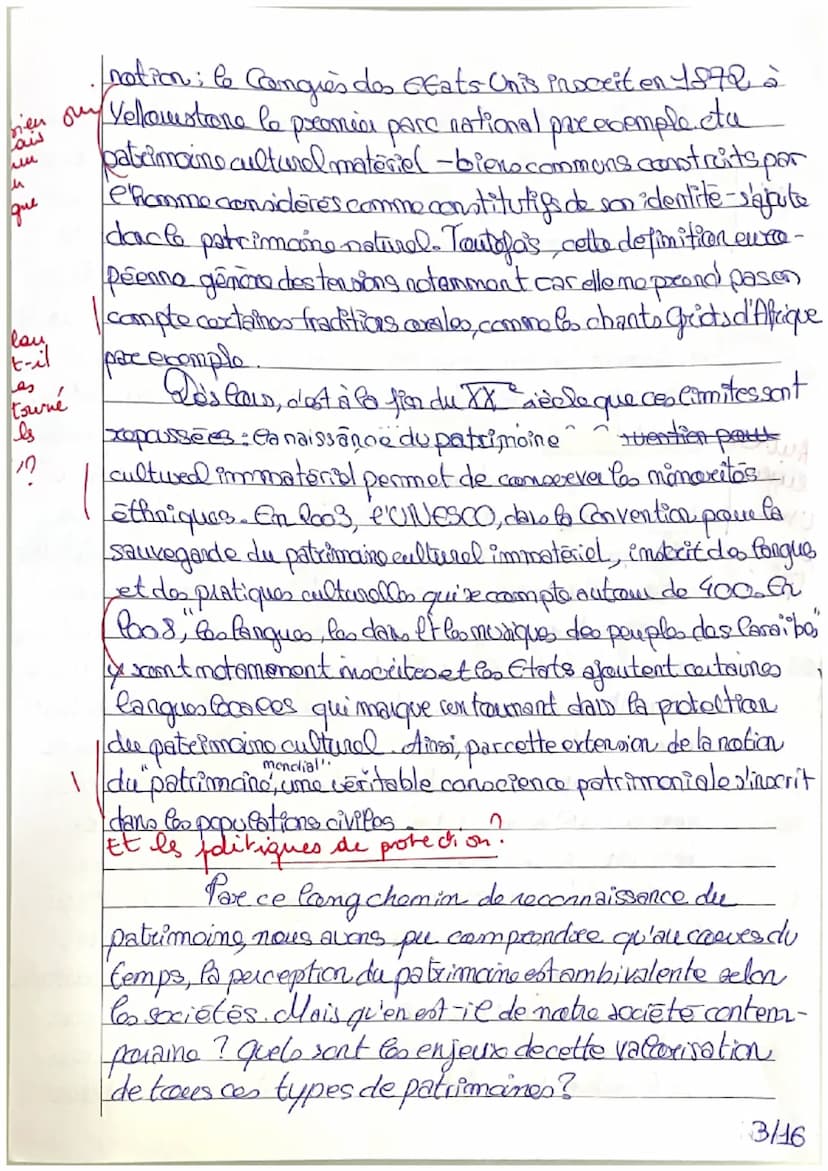 notion : le Congrès des Etats-Unis inscrit en 1872 à
Yellowstone le premier parc national par exemple. et du
patrimoine culturel matériel - biens communs construits par
l'Homme considérés comme constitutifs de son identité - s'ajoute
donc le patrimoine naturel. Toutefois, cette définition euro-
péenne génère des tensions notamment car elle ne prend pas en
compte certaines traditions orales, comme les chants Griots d'Afrique
par exemple.
Dès lors, c'est à la fin du XXe siècle que ces limites sont
repoussées : la naissance du patrimoine
culturel immatériel permet de conserver les minorités
éthniques. En 2003, l'UNESCO, dans la Convention pour la
sauvegarde du patrimoine culturel immatériel, inscrit des langues
et des pratiques culturelles qui se compte autour de 400. En
2008, "les langues, les danses et les musiques des peuples des Caraïbes"
y sont notamment inscrites et les Etats ajoutent certaines
langues locales qui marque un tournant dans la protection
du patrimoine culturel. Ainsi, par cette extension de la notion
mondial"
du "patrimoine, une véritable conscience patrimoniale s'inscrit
dans les populations civiles.
Et les politiques de protection ?
Par ce long chemin de reconnaissance du
patrimoine, nous avons pu comprendre qu'au cours du
temps, la perception du patrimoine est ambivalente selon
les sociétés. Mais qu'en est-il de notre société contem-
poraine ? Quels sont les enjeux de cette valorisation
de tous ces types de patrimoines ?
3/16
bien
oui
que
t-il
tourné
les
?